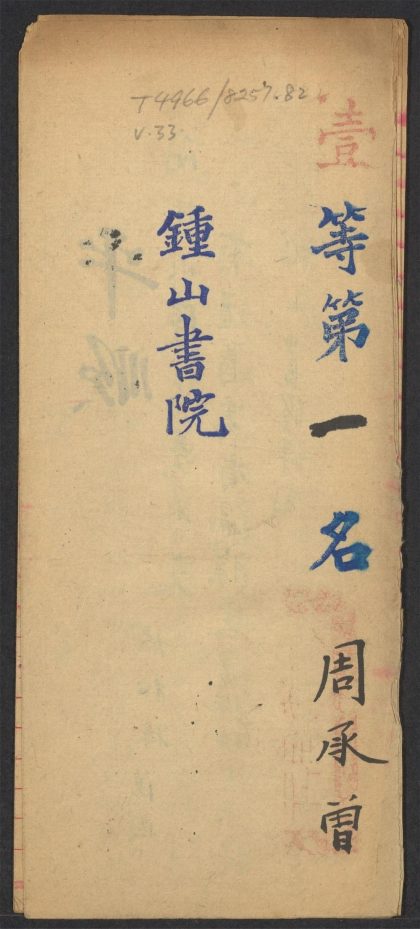 T4966/8257.82
v.33
壹等第一名 周承曾
鍾山書院